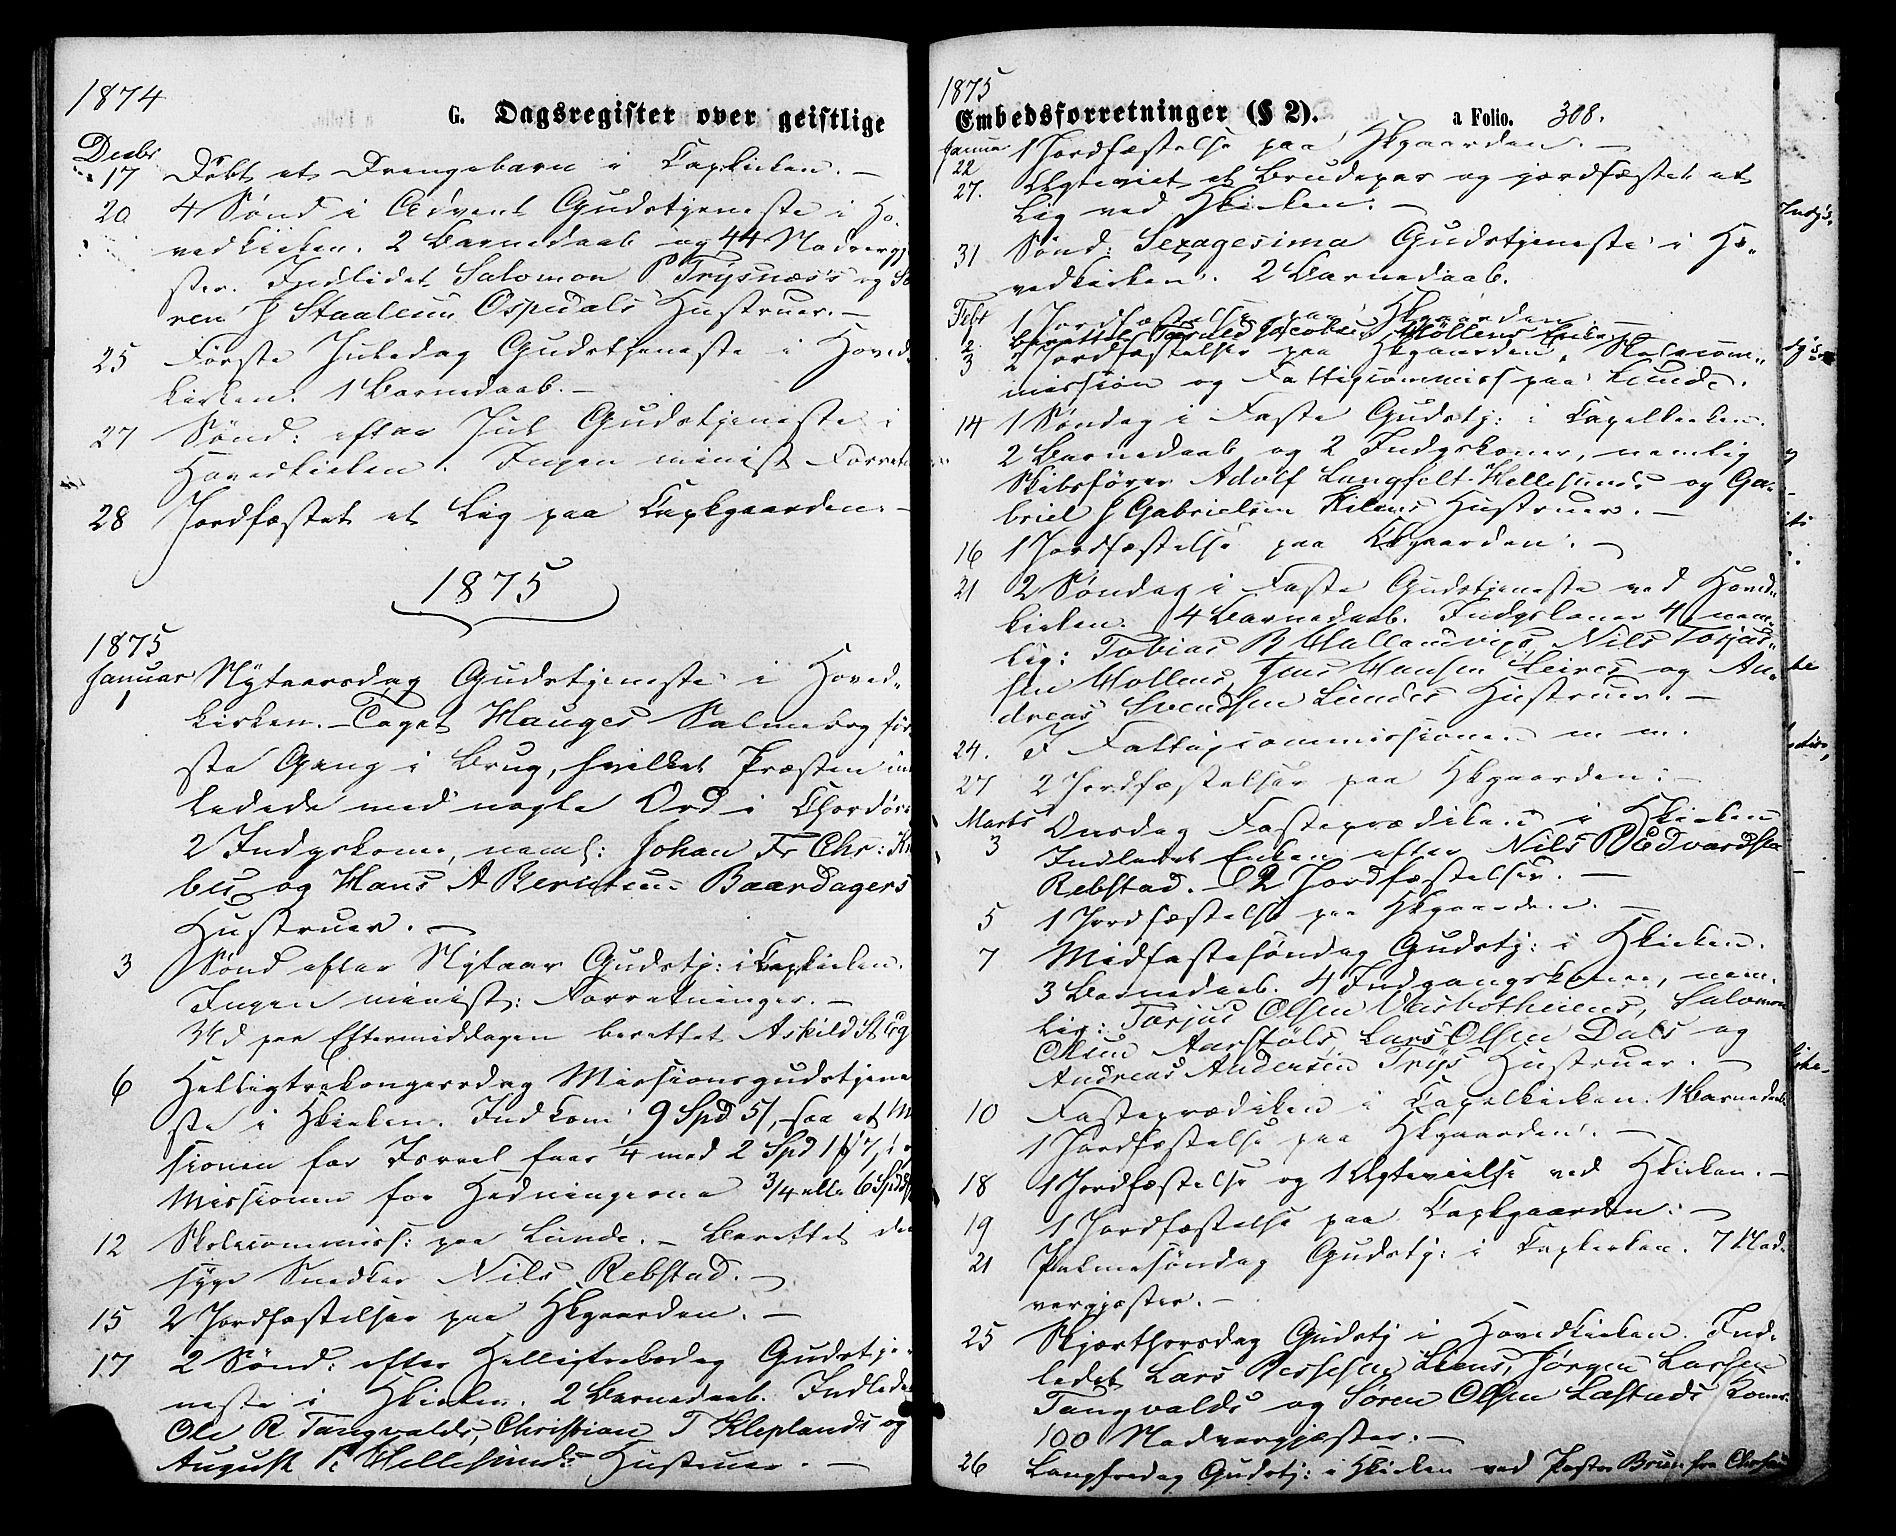 1874
G. Dagsregister over geistlige
Decbr
17 Døbt et Drengebarn i Capkirken. —
20 4 Sønd i Advent Gudstjeneste i Ho-
vedkirken. 2 Barnedaab og 44 Nadvergjæ-
ster. Indledet Salomon P Trysnæs's og Sø-
ren J Staalesen Ospedals Hustruer. —
25 Første Juledag Gudstjeneste i Hoved-
kirken. 1 Barnedaab. —
27 Sønd: efter Jul Gudstjeneste i
Hovedkirken. Ingen minist Forretn
28 Jordfæstet et Lig paa Capkgaarden. —
1875
1875
Januar
1 Nytaarsdag Gudstjeneste i Hoved-
kirken. — Taget Hauges Salmebog før-
ste Gang i Brug, hvilket Præsten ind
ledede med nogle Ord i Chordøren
2 Indgskoner, neml: Johan Fr Chr:
og Hans A Berntsen Baardagers
Hustruer. —
3 Sønd efter Nytaar Gudstj: i Capkirken.
Ingen minist: Forretninger. —
3d paa Eftermiddagen berettet Askild
6 Helligtrekongersdag Missionsgudstjene
ste i Hkirken. Indkom 9 Spd 5/, saa at Mis
sionen for Israel faar 1/4 med 2 Spd 1
Missionen for Hedningerne 3/4 elle 6 Spd
12 Skolecommiss: paa Lunde. — Berettet den
syge Snedker Nils Rebstad. —
15 2 Jordfæstelser paa Hkgaarden. —
17 2 Sønd: efter Helligtrekdag Gudstje-
neste i Hkirken. 2 Barnedaab. Indledet
Ole R Tangvalds, Christian T Kleplands og
August P. Hellesunds Hustruer. —
1875
Embedsforretninger (§ 2).
a Folio. 308.
Januar
22 1 Jordfæstelse paa Hkgaarden. —
27. Ægteviet et Brudepar og jordfæstet et
Lig ved Hkirken. —
31 Sønd: Sexagesima Gudstjeneste i Ho-
vedkirken. 2 Barnedaab.
Febr
2 1 Jordfæstelse paa Hkgaarden. —
berettet Jacobsen Møllens Enke
3 2 Jordfæstelser paa Hkgaarden. Skolecom-
mission og Fattigcommiss paa Lunde.
14 1 Søndag i Faste Gudstj: i Capelkirken.
2 Barnedaab og 2 Indgskoner, nemlig
Skibsfører Adolf Langfelt Hellesunds og Ga-
briel J Gabrielsen Kilens Hustruer. —
16 1 Jordfæstelse paa Ckgaarden. —
21 2 Søndag i Faste Gudstjeneste ved Hoved-
kirken. 4 Barnedaab. Indgskoner 4 nem-
lig: Tobias B Nils Torjus-
sen Mollens, Jens Hansen og An-
dreas Svendsen Lundes Hustruer. —
24. I Fattigcommissionen m m.
27 2 Jordfæstelser paa Hkgaarden. —
Marts
3 Onsdag Fasteprædiken i Hkirken
Indledet Enken efter Nils B Edvardsen
Rebstad. — 2 Jordfæstelser. —
5 1 Jordfæstelse paa Hkgaarden. —
7 Midfastesøndag Gudstj: i Hkirken.
3 Barnedaab. 4 Indgangskoner, nem-
lig: Torjus Olsen Salomon
Olsen Aarstøls, Lars Olsen Dals og
Andreas Andersen Trys Hustruer. —
10 Fasteprædiken i Capelkirken. 1 Barnedaab
1 Jordfæstelse paa Hkgaarden. —
18 1 Jordfæstelse og 1 Ægtevielse ved Hkirken. —
19 1 Jordfæstelse paa Capkgaarden. —
21 Palmesøndag Gudstj: i Capkirken. 7 Nad-
vergjæster. —
25 Skjærthorsdag Gudstj i Hovedkirken. Ind-
ledet Lars Liens, Jørgen Larsen
Tangvalds og Søren Olsen Løstads Koner.
100 Nadvergjæster. —
26 Langfredag Gudstj: i Hkirken ved Pastor Brun fra